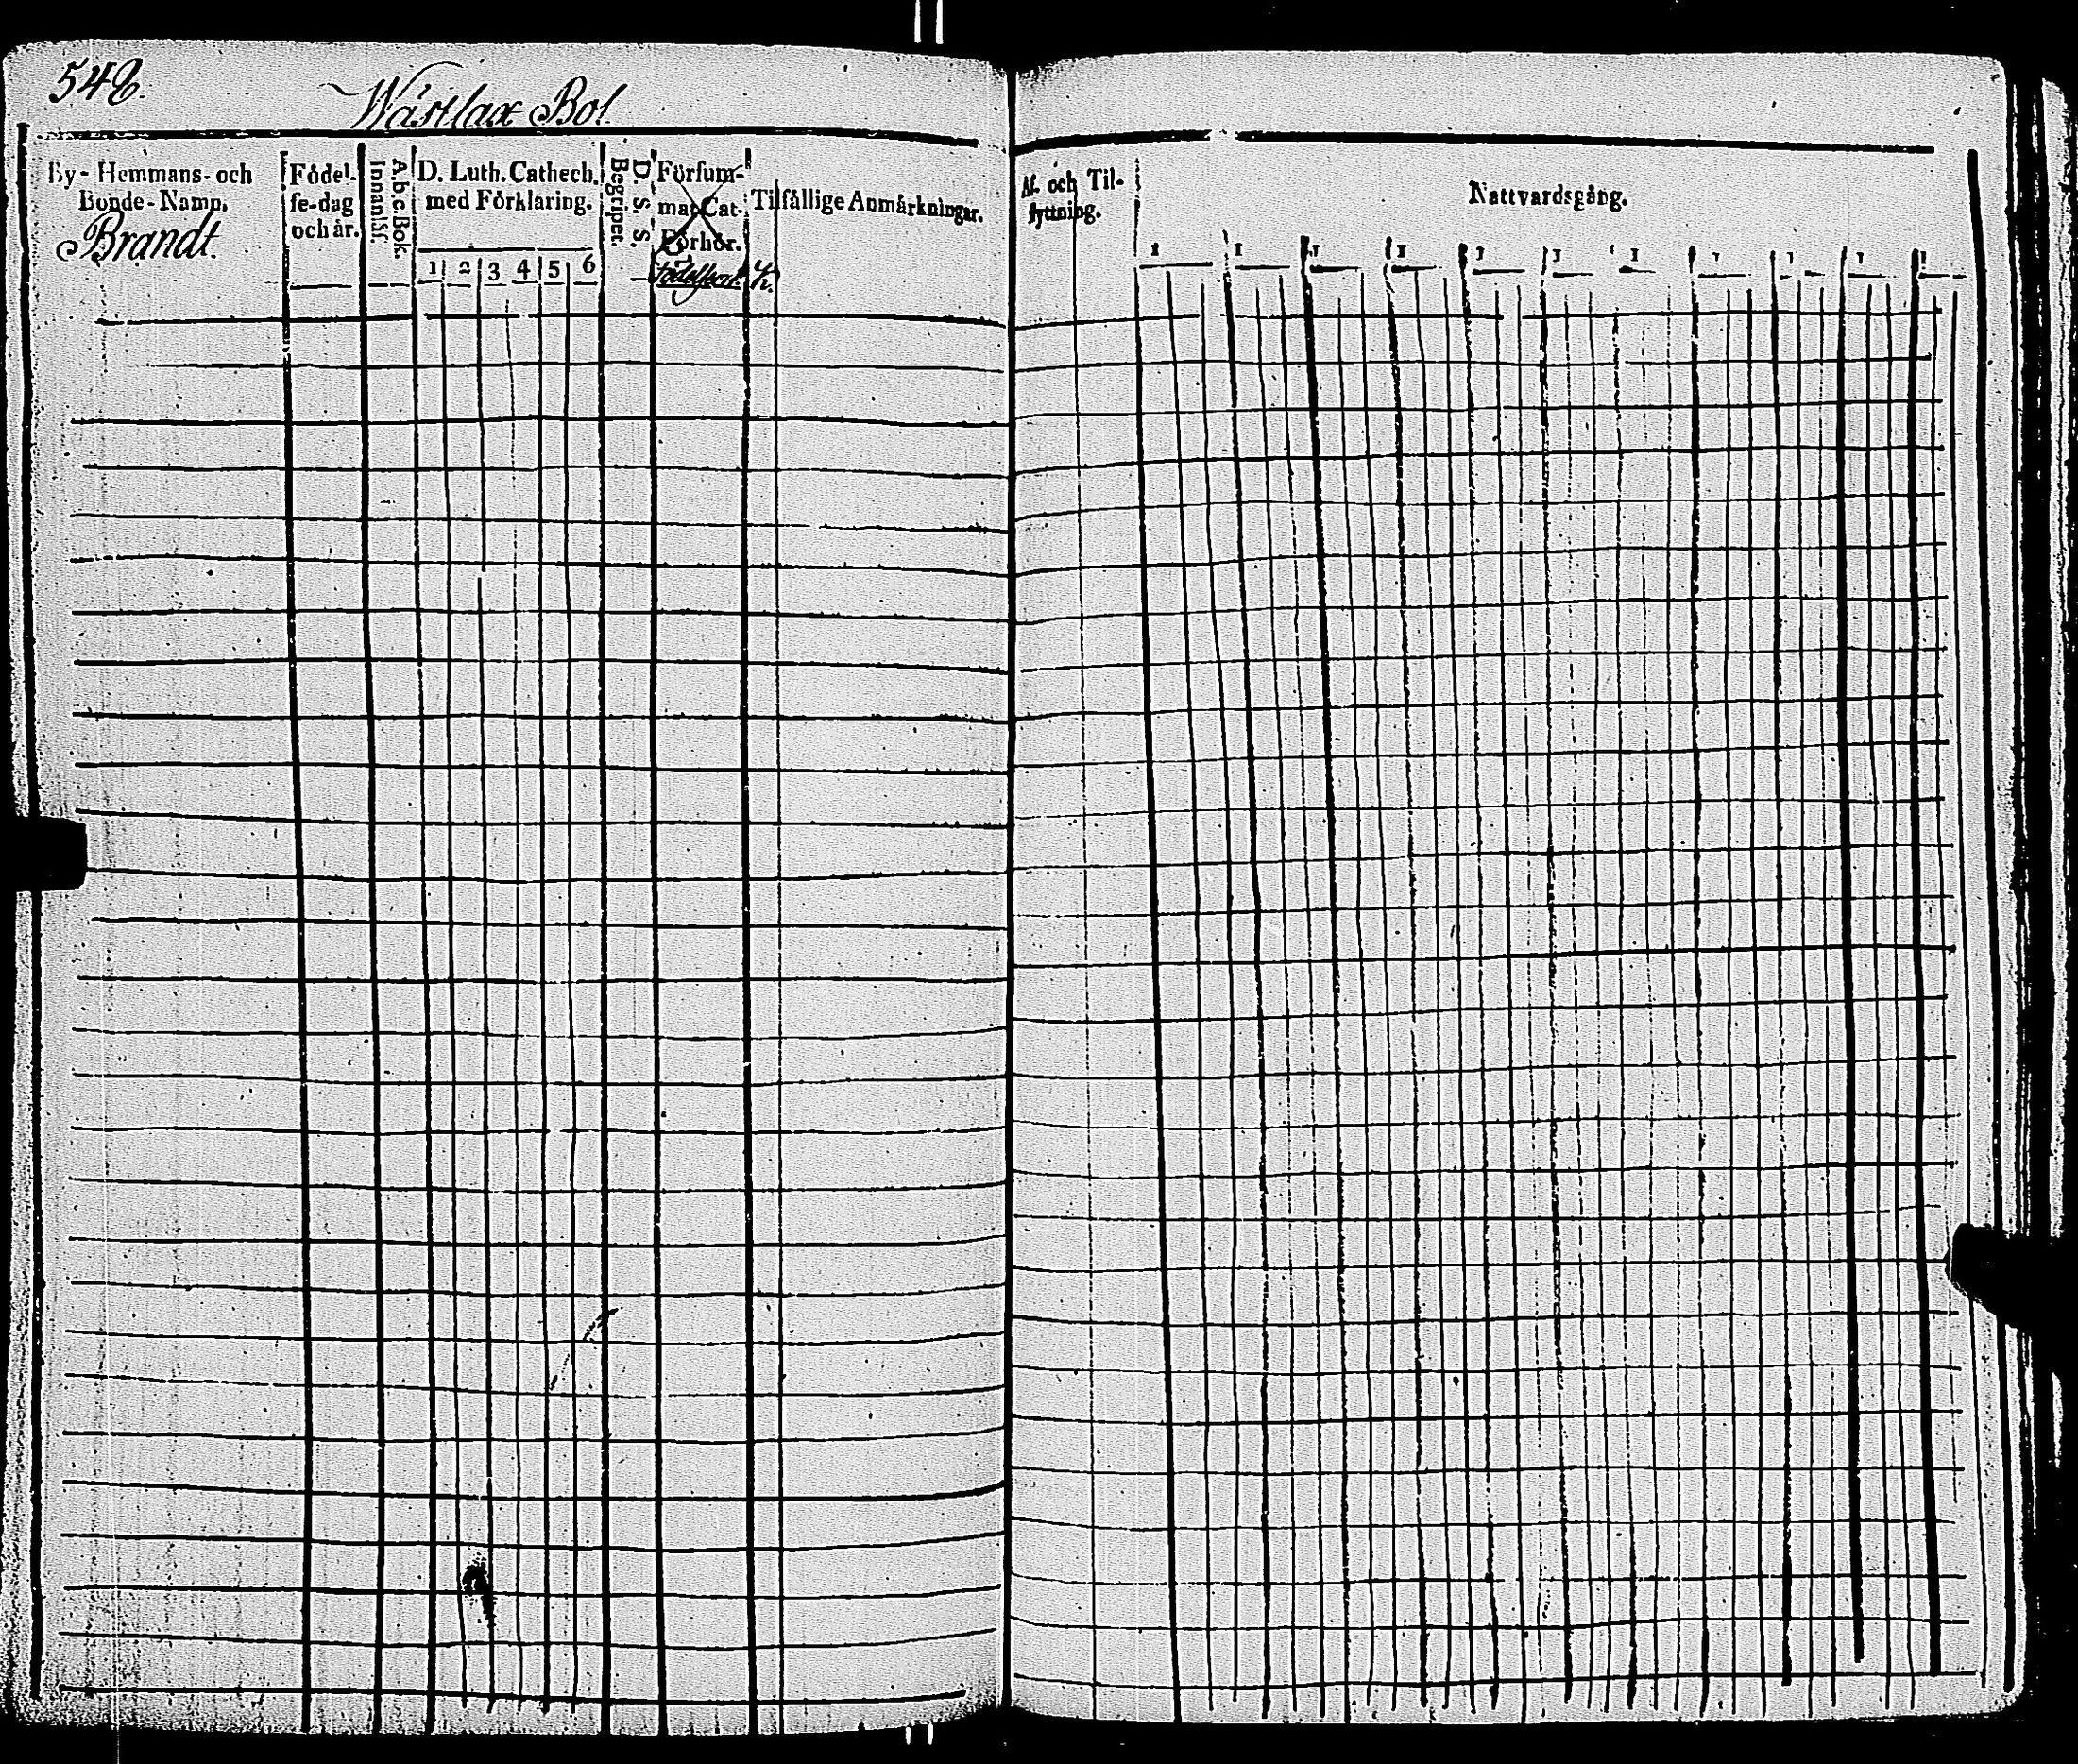 548.
Wästlax Bol.
By- Hemmans- och
Bonde-Namn.
Brandt.
Födel-
se-dag
och år.
A.b.c.Bok.
Innanläs.
D. Luth. Cathech.
med Förklaring.
1 2 3 4 5 6
D. S. S.
Begriper.
Försum-
mat Cat.
Förhör.
Födelseort.
K.
Tilfällige Anmärkningar.
Af. och Til-
flyttning.
Nattvardsgång.